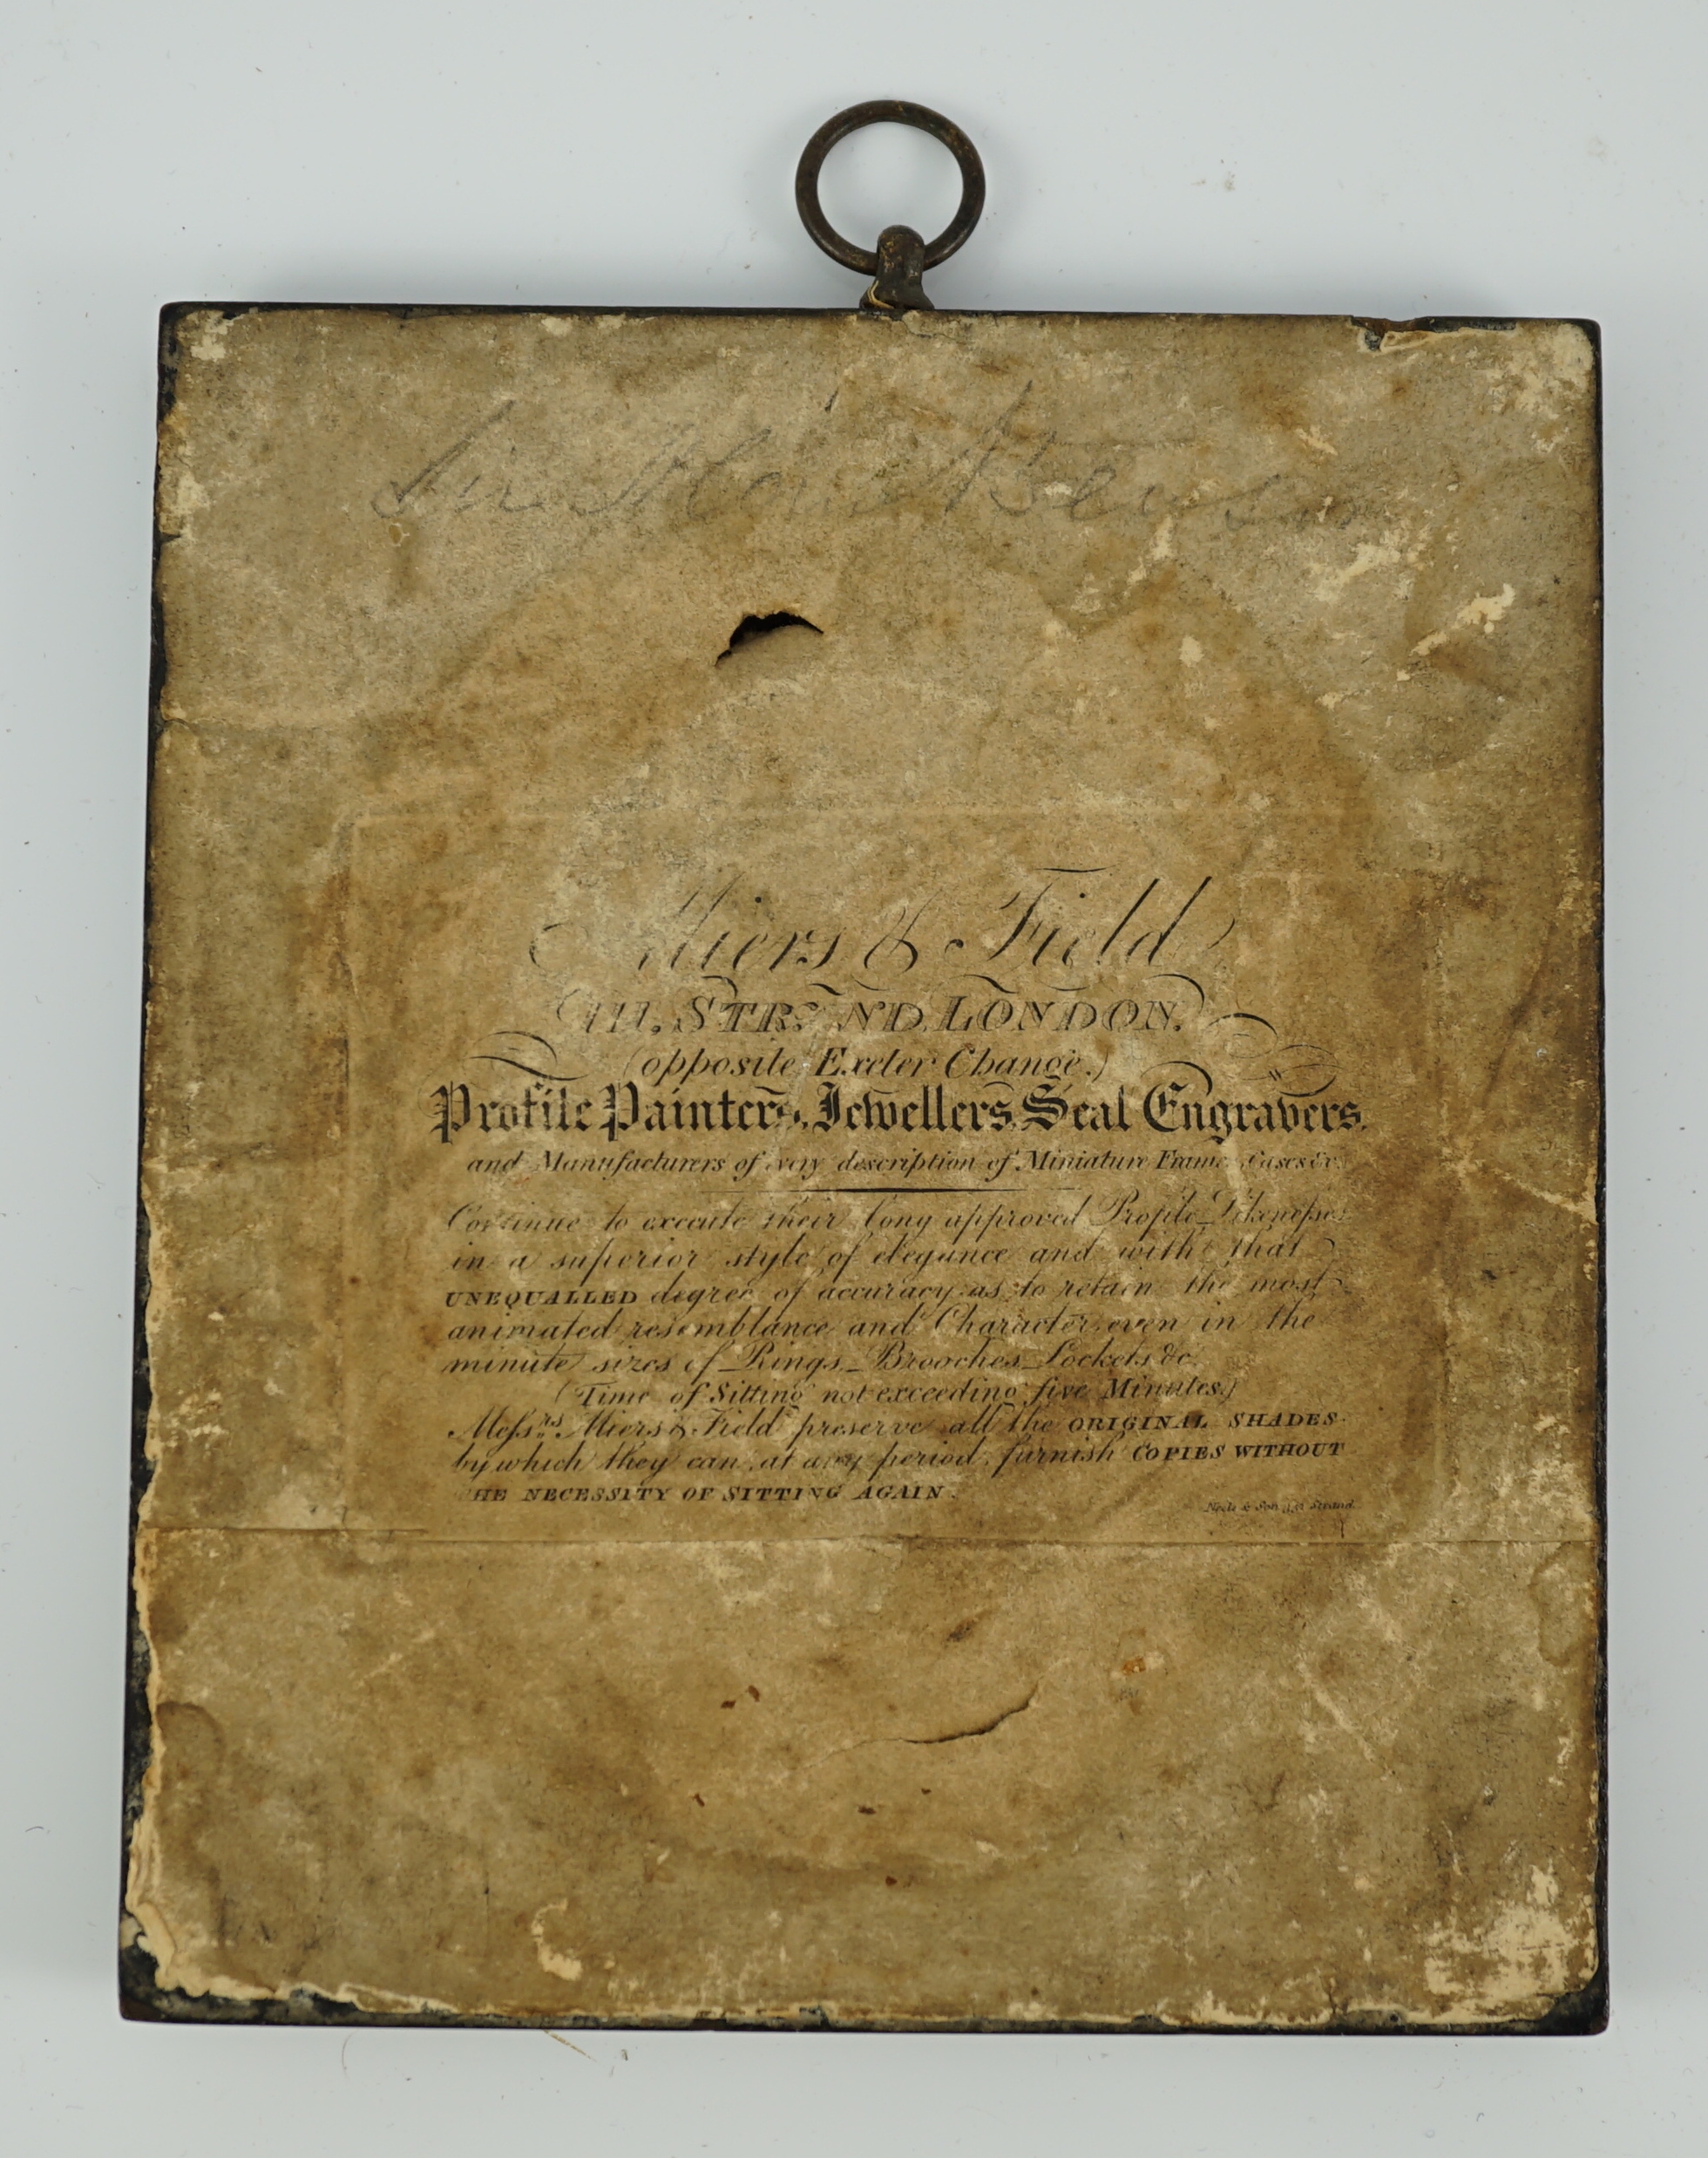 Sir
Miers & Field
111, STRAND, LONDON.
(opposite Exeter Change.)
Profile Painters, Jewellers, Seal Engravers,
and Manufacturers of every description of Miniature Frames, Cases &c.
Continue to execute their long approved Profile Likenesses
in a superior style of elegance and with that
UNEQUALLED degree of accuracy as to retain the most
animated resemblance and Character, even in the
minute sizes of Rings, Brooches, Lockets &c.
(Time of Sitting not exceeding five Minutes.)
Messrs. Miers & Field preserve all the ORIGINAL SHADES
by which they can, at any period, furnish COPIES WITHOUT
THE NECESSITY OF SITTING AGAIN.
Neele & Son Strand